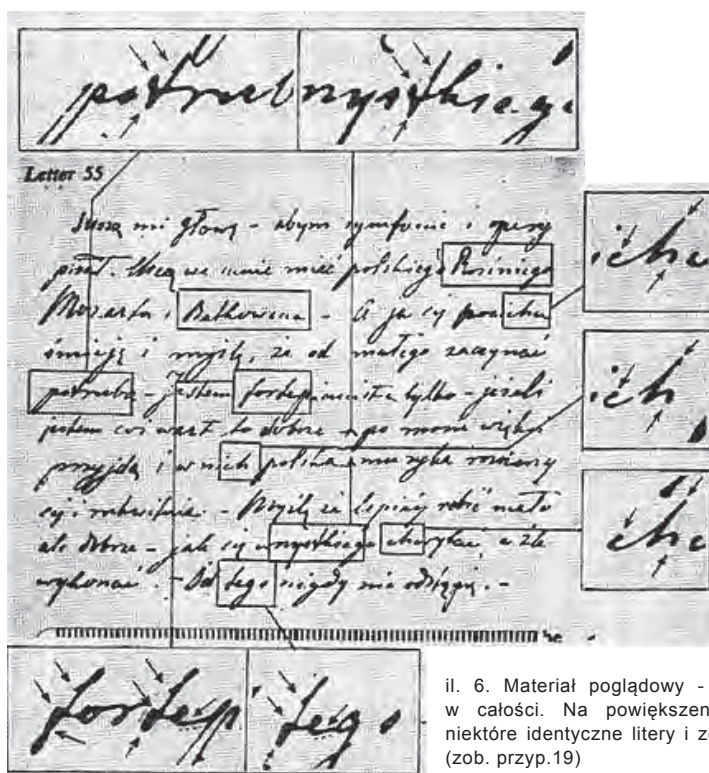 potrzeb
zystkieg
Letter 55
ichu
Suszą mi głowę - abym symfonie i opery
pisał. Chcą we mnie mieć polskiego Rosiniego
Mozarta i - A ja się pocichu
śmieję i myślę, że od małego zaczynać
potrzeba - jestem fortepianista tylko - jeżeli
ich
coś wart to dobrze - po mnie
przyjdą i w nich polska muzyka
się i - Myślę że lepiej robić mało
chw
ale dobrze - jak się wszystkiego chwytać, a źle
wykonać. - Od tego nigdy nie odstąpię. -
fortep
tego
il. 6. Materiał poglądowy -
w całości. Na
niektóre identyczne litery i
(zob. przyp.19)